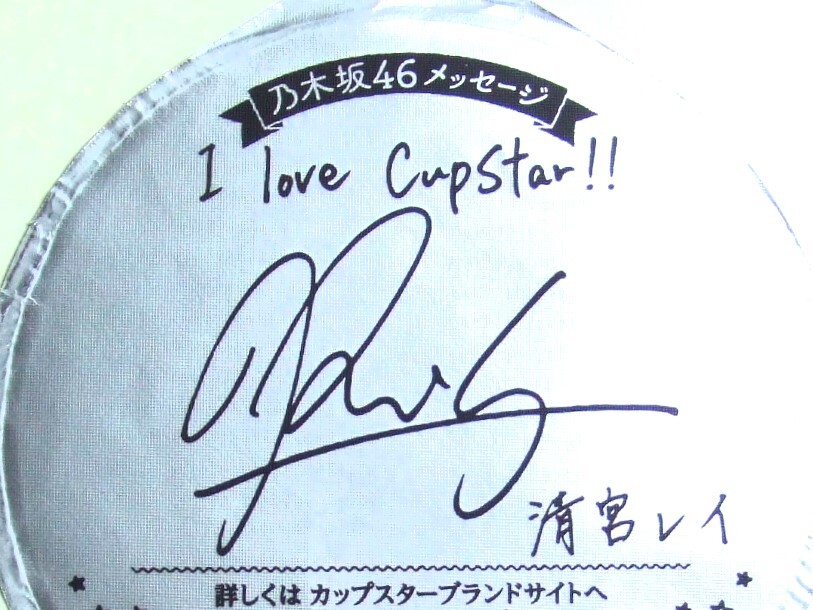 乃木坂46メッセージ
I love CupStar!!
清宮レイ
詳しくは カップスターブランドサイトへ